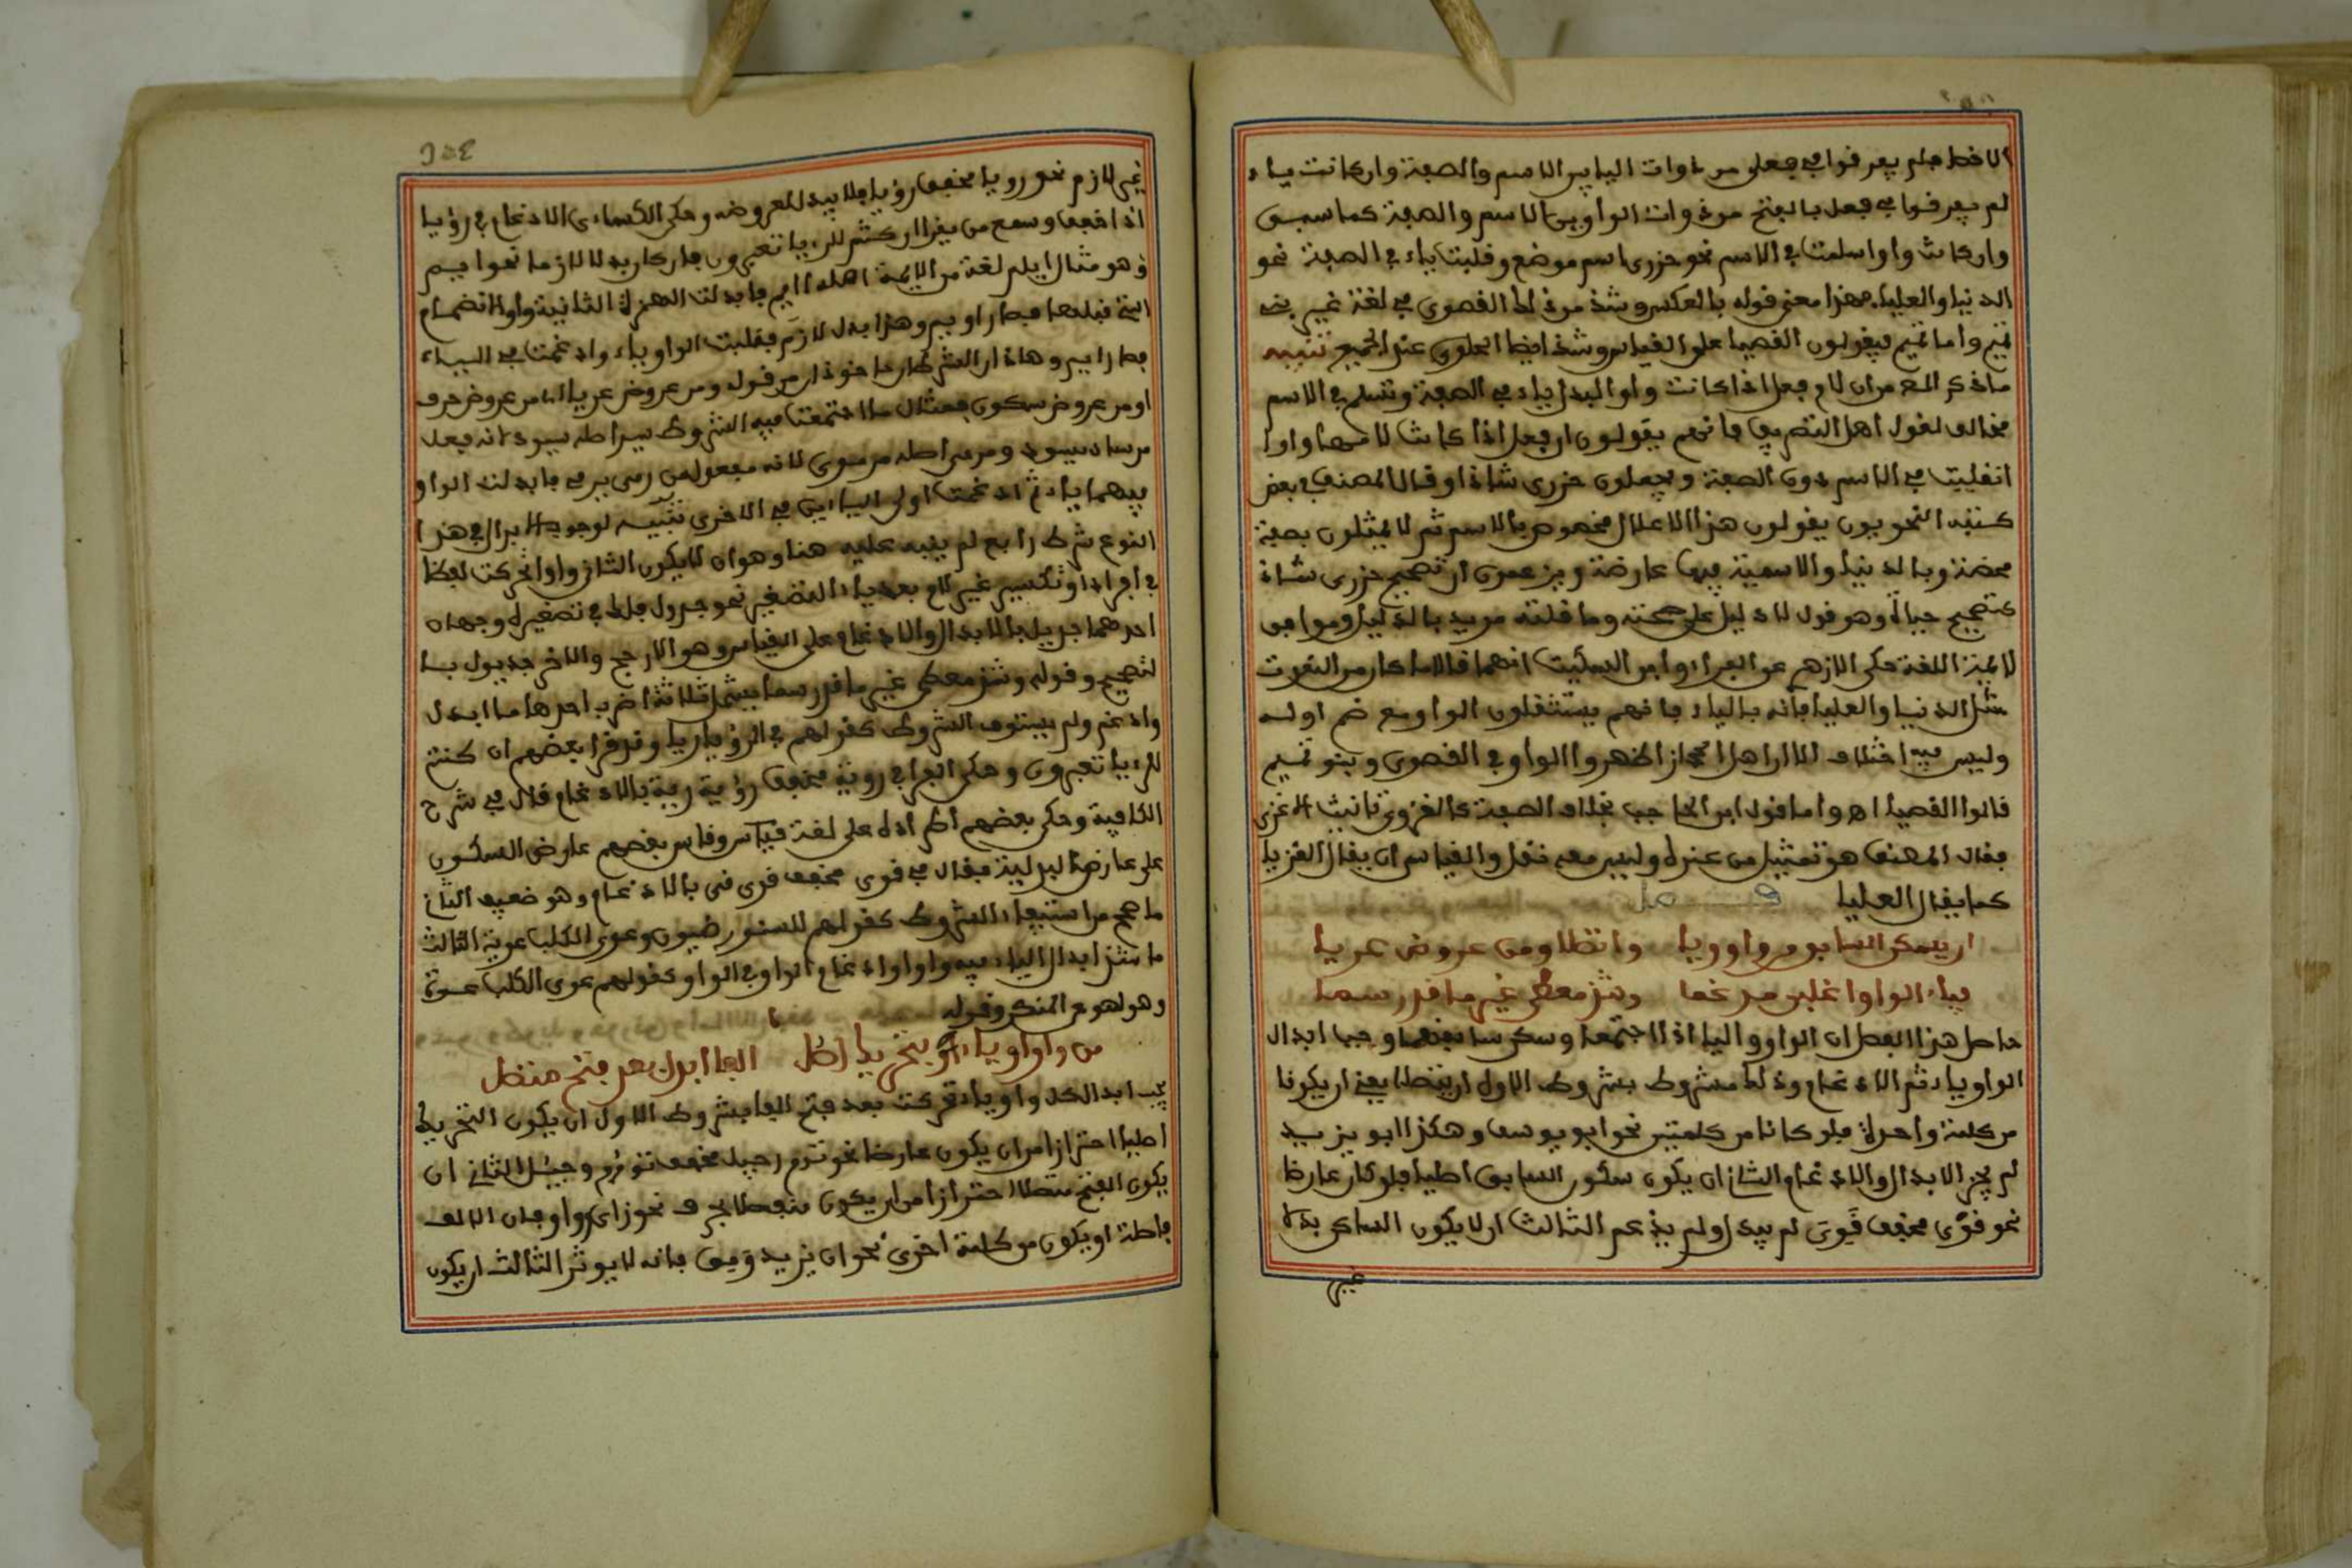 الاخف فلم يفرقوا في فعلى من ذوات اليا بين الاسم والصفة وان كانت ياء
لم يفرقوا في فعلى بالفتح من ذوات الواو بين الاسم والصفة كما سبق
وان كانت واوا سلمت في الاسم نحو حزوى اسم موضع وقلبت ياء في الصفة نحو
الدنيا والعليا فهذا معنى قوله بالعكس وشذ من ذلك القصوى في لغة غير بني
تميم واما تميم فيقولون القصيا على القياس وشذ ايضا الحلوى عند الجميع تنبيه
ما ذكر المص من ان لام فعلى اذا كانت واوا تبدل ياء في الصفة وتسلم في الاسم
مخالف لقول اهل التصريف فانهم يقولون ان فعلى اذا كانت لامها واوا
انقلبت في الاسم دون الصفة ويجعلون حزوى شاذا وقال المصنف في بعض
كتبه النحويون يقولون هذا الاعلال مخصوص بالاسم ثم لا يمثلون بصفة
محضة وبالدنيا والاسمية فيها عارضة ويزعمون ان تصحيح حزوى شاذ
كتصحيح حياة وهو قول لا دليل على صحته وما قلته مويد بالدليل وموافق
لائمة اللغة حكى الازهري عن الفراء وابن السكيت انهما قالا ما كان من النعوت
مثل الدنيا والعليا فانه بالياء فانهم يستثقلون الواو مع ضم اوله
وليس فيه اختلاف الا ان اهل الحجاز اظهروا الواو في القصوى وبنو تميم
قالوا القصيا اه واما قول ابن الحاجب بخلاف الصفة كالغزوى تانيث الاغزى
فقال المصنف هو تمثيل من عنده وليس معه نقل والقياس ان يقال الغزيا
كما يقال العليا فصل
ان يسكن السابق من واو ويا واتصلا ومن عروض عريا
فياء الواو اقلبن مدغما وشذ معطى غير ما قد رسما
حاصل هذا الفصل ان الواو واليا اذا اجتمعا وسكن سابقهما وجب ابدال
الواو ياء ثم الادغام وذلك مشروط بشروط الاول ان يتصلا يعني ان يكونا
من كلمة واحدة فلو كانا من كلمتين نحو ابو يوسف وهكذا ابو يزيد
لم يجز الابدال والادغام الثاني ان يكون سكون السابق اصليا فلو كان عارضا
نحو قوى مخفف قوي لم يبدل ولم يدغم الثالث ان لا يكون الساكن بدلا
غير
غير لازم نحو رويا مخفف رؤيا فلا يبدل لعروضه وحكى الكسائي الادغام في رؤيا
اذا خفف وسمع من يقرا ان كنتم للريا تعبرون فان كان بدلا لازما نحو ايم
وهو مثال ابلم لغة من الايمة اصله اايم فابدلت الهمزة الثانية واوا لانضمام
التي قبلها فصار اويم وهذا بدل لازم فقلبت الواو ياء وادغمت في الياء
فصار ايم وهاذان الشرطان ماخوذان من قوله ومن عروض عريا اي من عروض حرف
او من عروض سكون فمثال ما اجتمعت فيه الشروط سيد اصله سيود لانه فيعل
من ساد يسود ومرمي اصله مرموي لانه مفعول من رمى يرمي فابدلت الواو
فيهما ياء ثم ادغمت اولى الياءين في الاخرى تنبيه لوجوب الابدال في هذا
النوع شرط رابع لم ينبه عليه هنا وهو ان لا يكون الثاني واوا تحركت لفظا
في افراد او تكسير غير لام بعد ياء التصغير نحو جدول فلك في تصغيره وجهان
احدهما جديل بالابدال والادغام على القياس وهو الارجح والاخر جديول با
لتصحيح وقوله وشذ معطى غير ما قد رسما يشمل ثلاثة اضرب احدها ما ابدل
وادغم ولم يستوف الشروط كقولهم في الرؤيا ريا وقد قرا بعضهم ان كنتم
للريا تعبرون وحكى الفرا في روية مخفف رؤية رية بالادغام قال في شرح
الكافية وحكى بعضهم اطراده على لغة قياس وقاس بعضهم عارض السكون
على عارض البدلية فقال في قوى مخفف قوي قى بالادغام وهو ضعيف الثاني
ما صح مع استيفاء الشروط كقولهم للسنور ضيون وعوى الكلب عوية الثالث
ما شذ ابدال الياء فيه واوا وادغام الواو في الواو كقولهم عوى الكلب عوة
وهو نهو عن المنكر وقوله
من واو او ياء بتحريك اصل الفا ابدل بعد فتح متصل
يجب ابدال كل واو وياء تحركت بعد فتح الفا بشروط الاول ان يكون التحريك
اصليا احترازا من ان يكون عارضا نحو توم وجيل مخفف توءم وجيئل الثاني ان
يكون الفتح متصلا احترازا من ان يكون منفصلا بحرف نحو زاي وواو فان الالف
فاصلة او يكون من كلمة اخرى نحو ان يزيد ومق فانه لا يوثر الثالث ان يكون